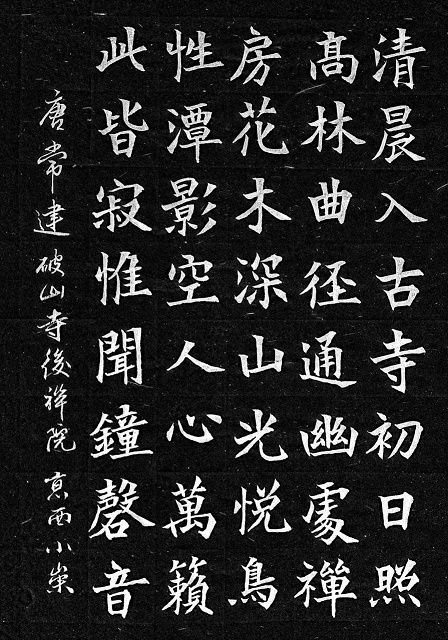 清晨入古寺初日照
髙林曲径通幽處禪
房花木深山光悦鳥
性潭影空人心萬籟
此皆寂惟聞鐘磬音
唐常建破山寺後禅院